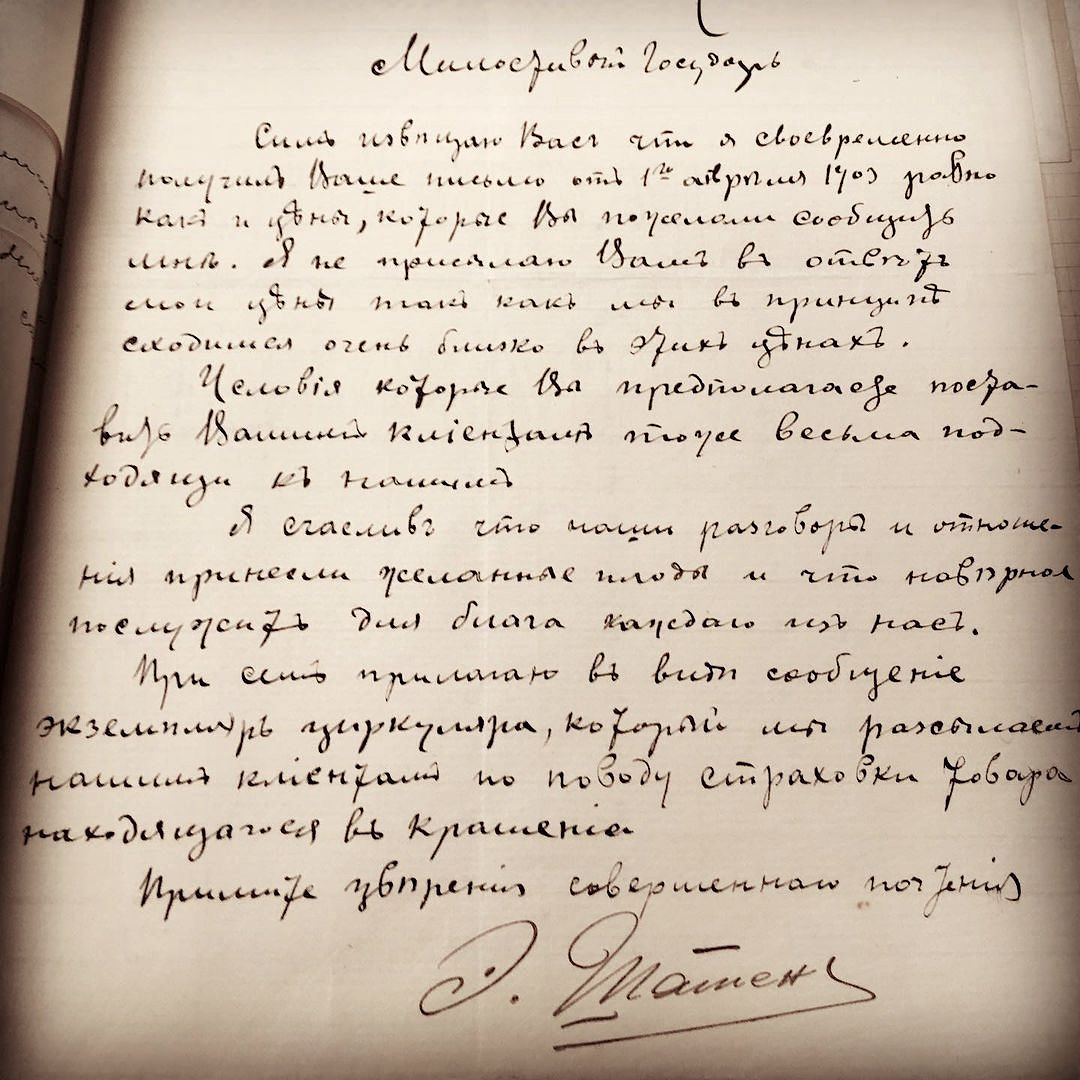 Милостивый Государь
Симъ извѣщаю Васъ что я своевременно
получилъ Ваше письмо отъ 1го апрѣля 1903 равно
какъ и цѣны, которые Вы пожелали сообщить
мнѣ. Я не присылаю Вамъ въ отвѣтъ
мои цѣны такъ какъ мы въ принципѣ
сходимся очень близко въ этихъ цѣнахъ.
Условія которые Вы предполагаете поста-
вить Вашимъ кліентамъ тоже весьма под-
ходящи къ нашимъ
Я счасливъ что наши разговоры и отноше-
нія принесли желанные плоды и что навѣрное
послужитъ для блага каждаго изъ насъ.
При семъ прилагаю въ видѣ сообщеніе
экземпляръ циркуляра, который мы разсылаемъ
нашимъ кліентамъ по поводу страховки товара
находящагося въ крашеніе
Примите увѣренія совершеннаго почтенія
Э. Татен